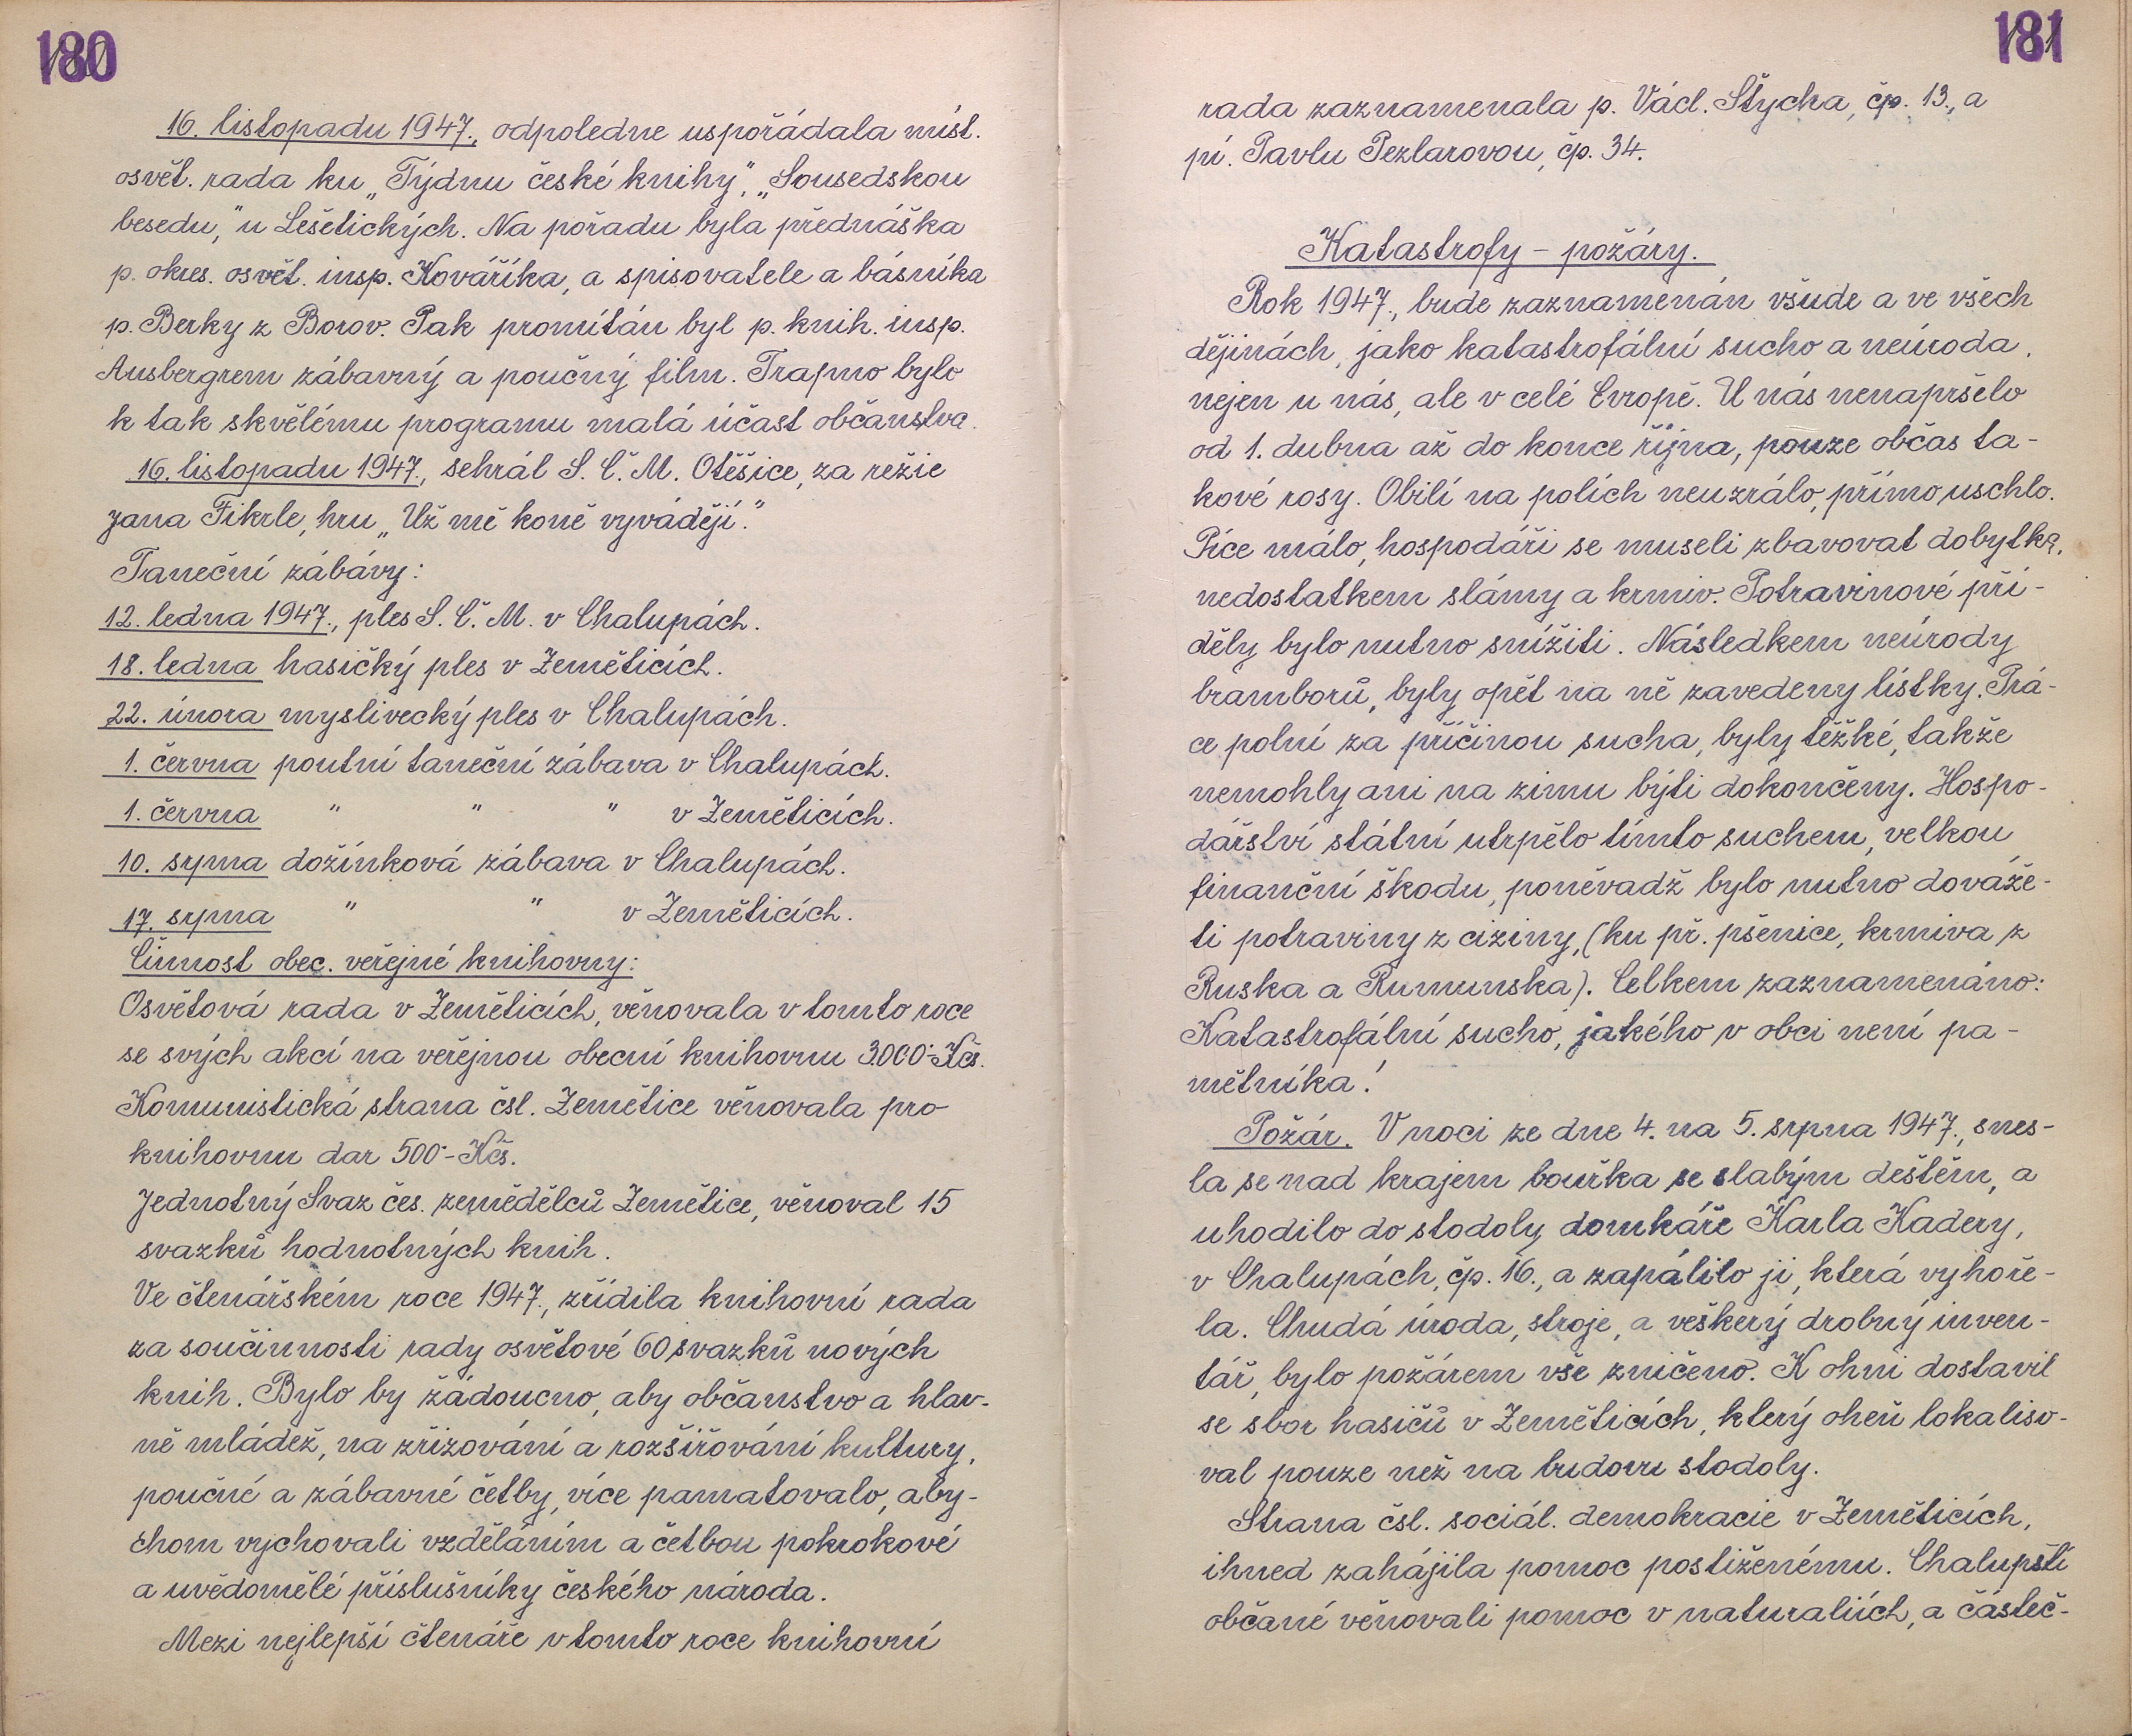 180
16. listopadu 1947., odpoledne uspořádala míst.
osvět. rada ku „Týdnu české knihy", „Sousedskou
besedu," u Lešetických. Na pořadu byla přednáška
p. okres. osvět. insp. Kováříka, a spisovatele a básníka
p. Berky z Borov. Pak promítán byl p. knih. insp.
Ausbergrem zábavný a poučný film. Trapno bylo
k tak skvělému programu malá účast občanstva.
16. listopadu 1947., sehrál S. Č. M. Otěšice, za režie
Jana Fikrle, hru „Už mě koně vyvádějí."
Taneční zábávy:
12. ledna 1947., ples S. Č. M. v Chalupách.
18. ledna hasičký ples v Zeměticích.
22. února myslivecký ples v Chalupách.
1. června poutní taneční zábava v Chalupách.
1. června " " " v Zeměticích.
10. srpna dožínková zábava v Chalupách.
17. srpna " " v Zeměticích.
Činnost obec. veřejné knihovny:
Osvětová rada v Zeměticích, věnovala v tomto roce
se svých akcí na veřejnou obecní knihovnu 3.000·-Kčs.
Komunistická strana čsl. Zemětice věnovala pro
knihovnu dar 500·-Kčs.
Jednotný Svaz čes. zemědělců Zemětice, věnoval 15
svazků hodnotných knih.
Ve čtenářském roce 1947., zřídila knihovní rada
za součinnosti rady osvětové 60 svazků nových
knih. Bylo by žádoucno, aby občanstvo a hlav-
ně mládež, na zřizování a rozšiřování kultury,
poučné a zábavné četby, více pamatovalo, aby-
chom vychovali vzděláním a četbou pokrokové
a uvědomělé příslušníky českého národa.
Mezi nejlepší čtenáře v tomto roce knihovní
181
rada zaznamenala p. Václ. Štycha, čp. 13., a
pí. Pavlu Pezlarovou, čp. 34.
Katastrofy – požáry.
Rok 1947., bude zaznamenán všude a ve všech
dějinách, jako katastrofální sucho a neúroda,
nejen u nás, ale v celé Evropě. U nás nenapršelo
od 1. dubna až do konce října, pouze občas ta-
kové rosy. Obilí na polích neuzrálo, přímo uschlo.
Píce málo, hospodáři se museli zbavovat dobytka,
nedostatkem slámy a krmiv. Potravinové pří-
děly bylo nutno snížiti. Následkem neúrody
bramborů, byly opět na ně zavedeny lístky. Prá-
ce polní za příčinou sucha, byly těžké, takže
nemohly ani na zimu býti dokončeny. Hospo-
dářství státní utrpělo tímto suchem, velkou
finanční škodu, poněvadž bylo nutno dováže-
ti potraviny z ciziny, (ku př. pšenice, krmiva z
Ruska a Rumunska). Celkem zaznamenáno:
Katastrofální sucho, jakého v obci není pa-
mětníka!
Požár. V noci ze dne 4. na 5. srpna 1947., snes-
la se nad krajem bouřka se slabým deštěm, a
uhodilo do stodoly domkáře Karla Kadery,
v Chalupách, čp. 16., a zapálilo ji, která vyhoře-
la. Chudá úroda, stroje, a veškerý drobný inven-
tář, bylo požárem vše zničeno. K ohni dostavil
se sbor hasičů v Zeměticích, který oheň lokaliso-
val pouze než na budovu stodoly.
Strana čsl. sociál. demokracie v Zeměticích,
ihned zahájila pomoc postiženému. Chalupští
občané věnovali pomoc v naturaliích, a částeč-